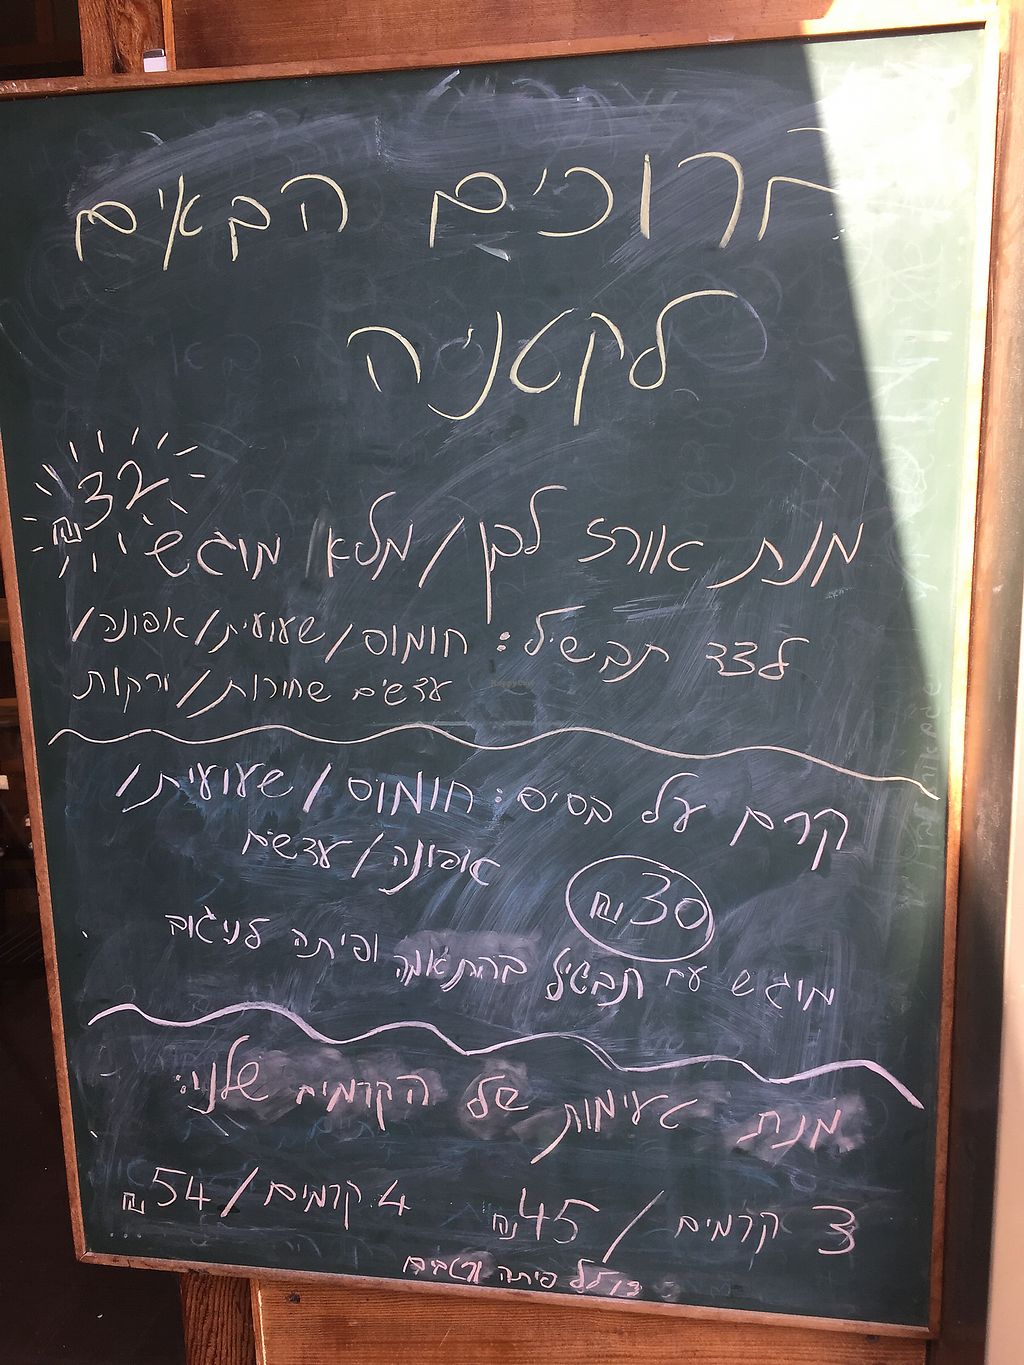 ברוכים הבאים
לקאניה
מנת אורז לבן/מלא מוגש ב: 32 ₪
לצד תבשיל: חומוס/שעועית/אפונה/
עדשים שחורות/ירקות
קרם על בסיס: חומוס/שעועית/
אפונה/עדשים
30 ₪
מוגש עם תבשיל בהתאמה ופיתה לניגוב
מנת טעימות של הקרמים שלנו:
3 קרמים/45 ₪ 4 קרמים/54 ₪
כולל פיתה ורטבים